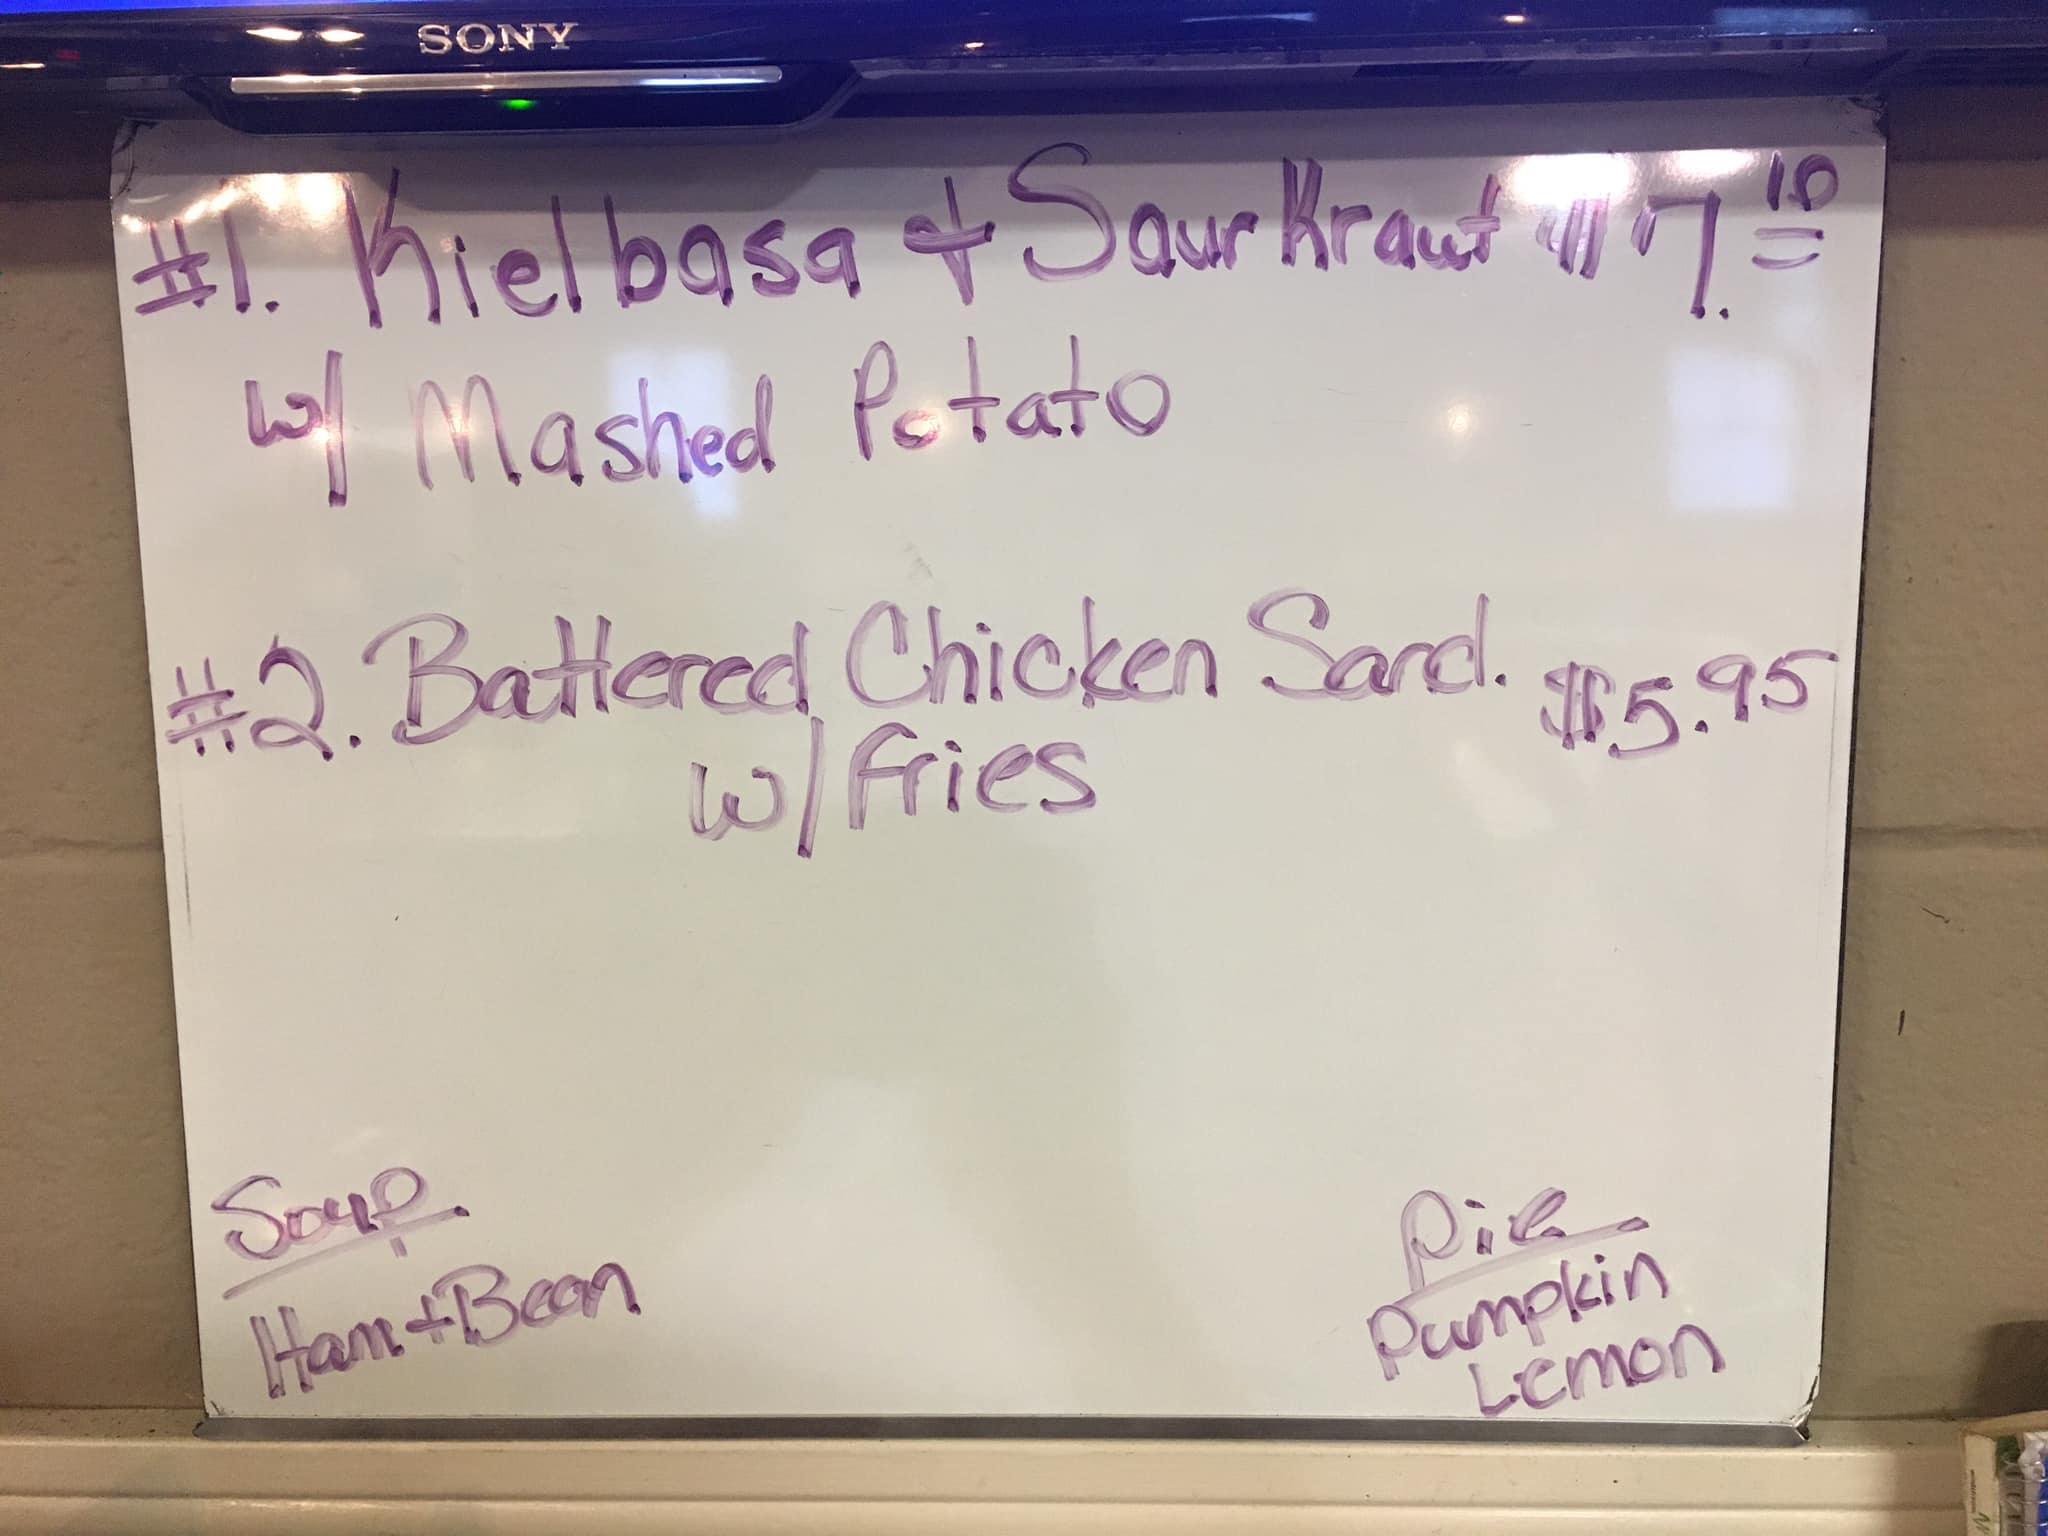 SONY
#1. Kielbasa & SaurKraut $7.10
w/ Mashed Potato
#2. Battered Chicken Sand. $5.95
w/ fries
Soup
Ham + Bean
Pie
Pumpkin
Lemon